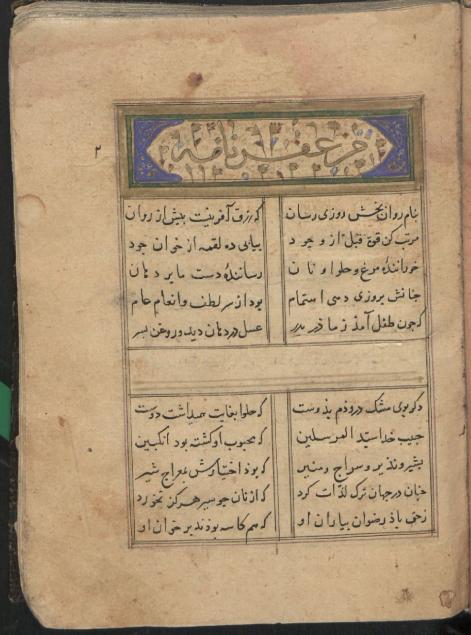 ۲
مزعفرنامه
بنام روان بخش روزی رسان که رزق آفرینت پیش از روان
مرتب کن قوت قبل از وجود بپای ده لقمه از خوان جود
خوراننده مرغ و حلوا و نان رساننده دست ما بر دهان
چنانش بروزی دهی اهتمام بود از سر لطف و انعام عام
که چون طفل آمد ز مادر بدر عسل در دهان دید و روغن بسر
دکر بوی مشک درودم بدوست که حلوا بغایت همیداشت دوست
حبیب خدا سید المرسلین که محبوب او کشته بود انکبین
بشیر و نذیر و سراج و منیر که بود اختیارش بمعراج شیر
چنان در جهان ترک لذات کرد که از نان جو سیر هرکز نخورد
ز حق باد رضوان بیاران او که هم کاسه بودند بر خوان او